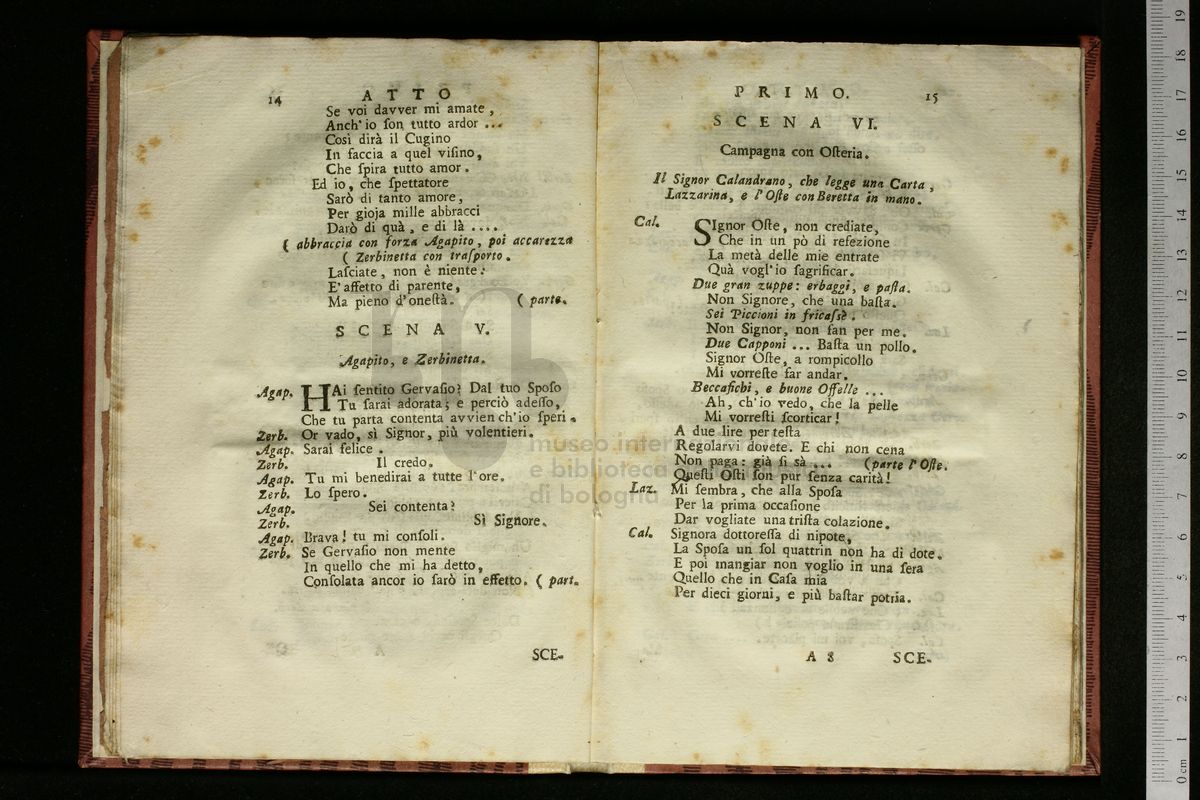 14 ATTO
Se voi davver mi amate,
Anch'io ſon tutto ardor ...
Così dirà il Cugino
In faccia a quel viſino,
Che ſpira tutto amor.
Ed io, che ſpettatore
Sarò di tanto amore,
Per gioja mille abbracci
Darò di quà, e di là ....
( abbraccia con forza Agapito, poi accarezza
( Zerbinetta con traſporto.
Laſciate, non è niente:
E' affetto di parente,
Ma pieno d'oneſtà. ( parte.
SCENA V.
Agapito, e Zerbinetta.
Agap. HAi ſentito Gervaſio? Dal tuo Spoſo
Tu ſarai adorata; e perciò adeſſo,
Che tu parta contenta avvien ch'io ſperi.
Zerb. Or vado, sì Signor, più volentieri.
Agap. Sarai felice.
Zerb. Il credo.
Agap. Tu mi benedirai a tutte l'ore.
Zerb. Lo ſpero.
Agap. Sei contenta?
Zerb. Sì Signore.
Agap. Brava! tu mi conſoli.
Zerb. Se Gervaſio non mente
In quello che mi ha detto,
Conſolata ancor io ſarò in effetto. ( part.
SCE-
PRIMO. 15
SCENA VI.
Campagna con Oſteria.
Il Signor Calandrano, che legge una Carta,
Lazzarina, e l'Oſte con Beretta in mano.
Cal. SIgnor Oſte, non crediate,
Che in un pò di refezione
La metà delle mie entrate
Quà vogl'io ſagrificar.
Due gran zuppe: erbaggi, e paſta.
Non Signore, che una baſta.
Sei Piccioni in fricaſsè.
Non Signor, non fan per me.
Due Capponi ... Baſta un pollo.
Signor Oſte, a rompicollo
Mi vorreſte far andar.
Beccafichi, e buone Offelle ...
Ah, ch'io vedo, che la pelle
Mi vorreſti ſcorticar!
A due lire per teſta
Regolarvi dovete. E chi non cena
Non paga: già ſi sà ... (parte l'Oſte.
Queſti Oſti ſon pur ſenza carità!
Laz. Mi ſembra, che alla Spoſa
Per la prima occaſione
Dar vogliate una triſta colazione.
Cal. Signora dottoreſſa di nipote,
La Spoſa un ſol quattrin non ha di dote.
E poi mangiar non voglio in una ſera
Quello che in Caſa mia
Per dieci giorni, e più baſtar potria.
A 8 SCE-
museo inter
e biblioteca
di bologna
0 cm 1 2 3 4 5 6 7 8 9 10 11 12 13 14 15 16 17 18 19